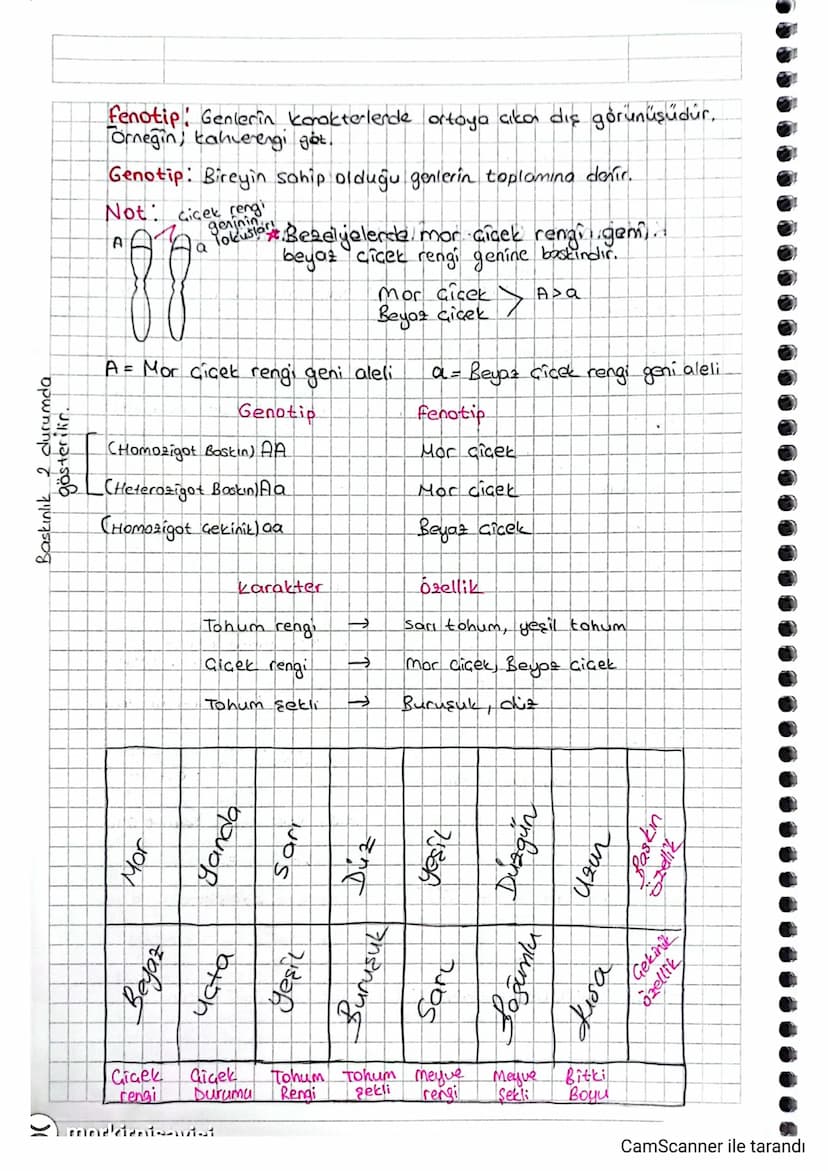 Fenotip: Genlerin karakterlerde ortaya çıkan dış görünüşüdür.
Örneğin; kahverengi göt.
Genotip: Bireyin sahip olduğu genlerin toplamına denir.
Not: çiçek rengi
geninin
lokusları
A
a
* Bezelyelerde mor çiçek rengi geni,
beyaz çiçek rengi genine baskındır.
Mor çiçek
Beyaz çiçek
> A>a
A = Mor çiçek rengi geni aleli a = Beyaz çiçek rengi geni aleli
Baskınlık 2 durumda
gösterilir.
Genotip Fenotip
(Homozigot Baskın) AA Mor çiçek
(Heterozigot Baskın) Aa Mor çiçek
(Homozigot Çekinik) aa Beyaz çiçek
Karakter Özellik
Tohum rengi → Sarı tohum, yeşil tohum
Çiçek rengi → Mor çiçek, Beyaz çiçek
Tohum şekli → Buruşuk, düz
Mor Yanda Sarı Düz Yeşil Düzgün Uzun Baskın özellik
Beyaz Uçta Yeşil Buruşuk Sarı Boğumlu Kısa Çekinik özellik
Çiçek rengi Çiçek Durumu Tohum Rengi Tohum Şekli Meyve rengi Meyve Şekli Bitki Boyu
CamScanner ile tarandı